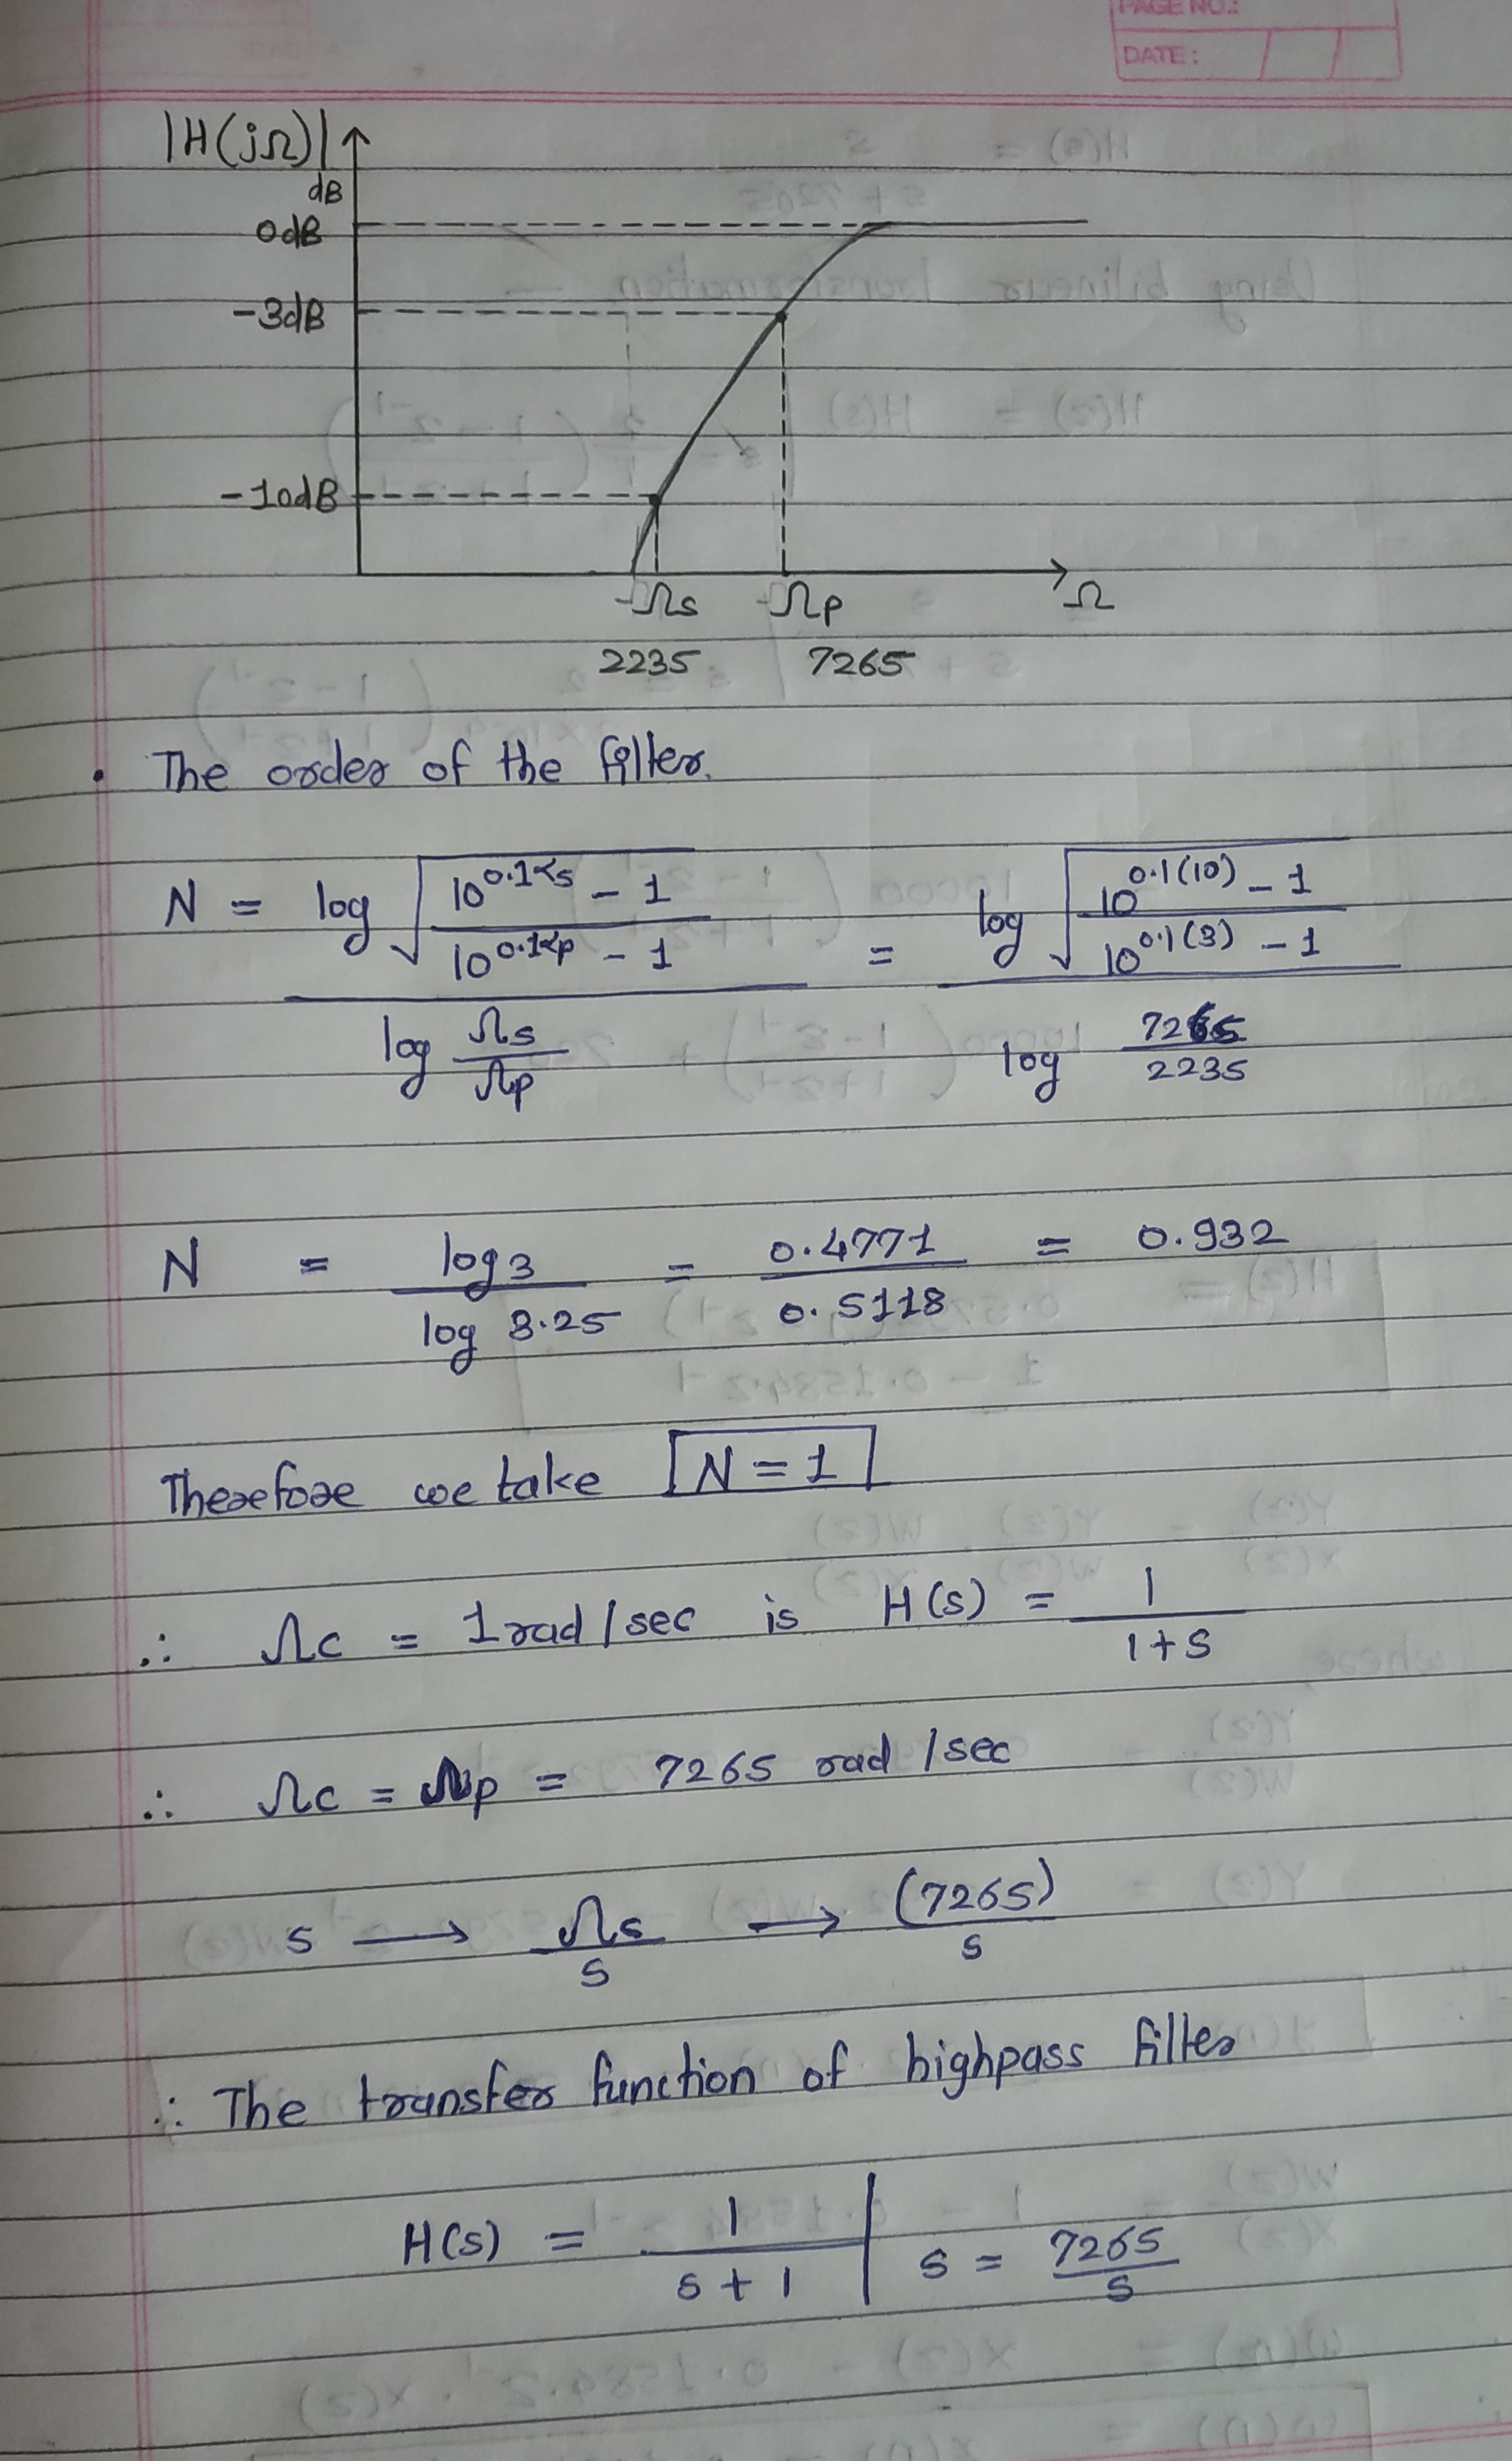 PAGE NO.:
DATE:
|H(jΩ)|
dB
0dB
-3dB
-10dB
Ωs Ωp Ω
2235 7265
• The order of the filter.
N = log √((10^0.1αs - 1)/(10^0.1αp - 1)) / log (Ωs/Ωp) = log √((10^0.1(10) - 1)/(10^0.1(3) - 1)) / log (7265/2235)
N = log 3 / log 3.25 = 0.4771 / 0.5118 = 0.932
Therefore we take N = 1
∴ Ωc = 1 rad/sec is H(s) = 1/(1+s)
∴ Ωc = Ωp = 7265 rad/sec
s → Ωs/s → (7265)/s
∴ The transfer function of highpass filter
H(s) = 1/(s+1) | s = 7265/s